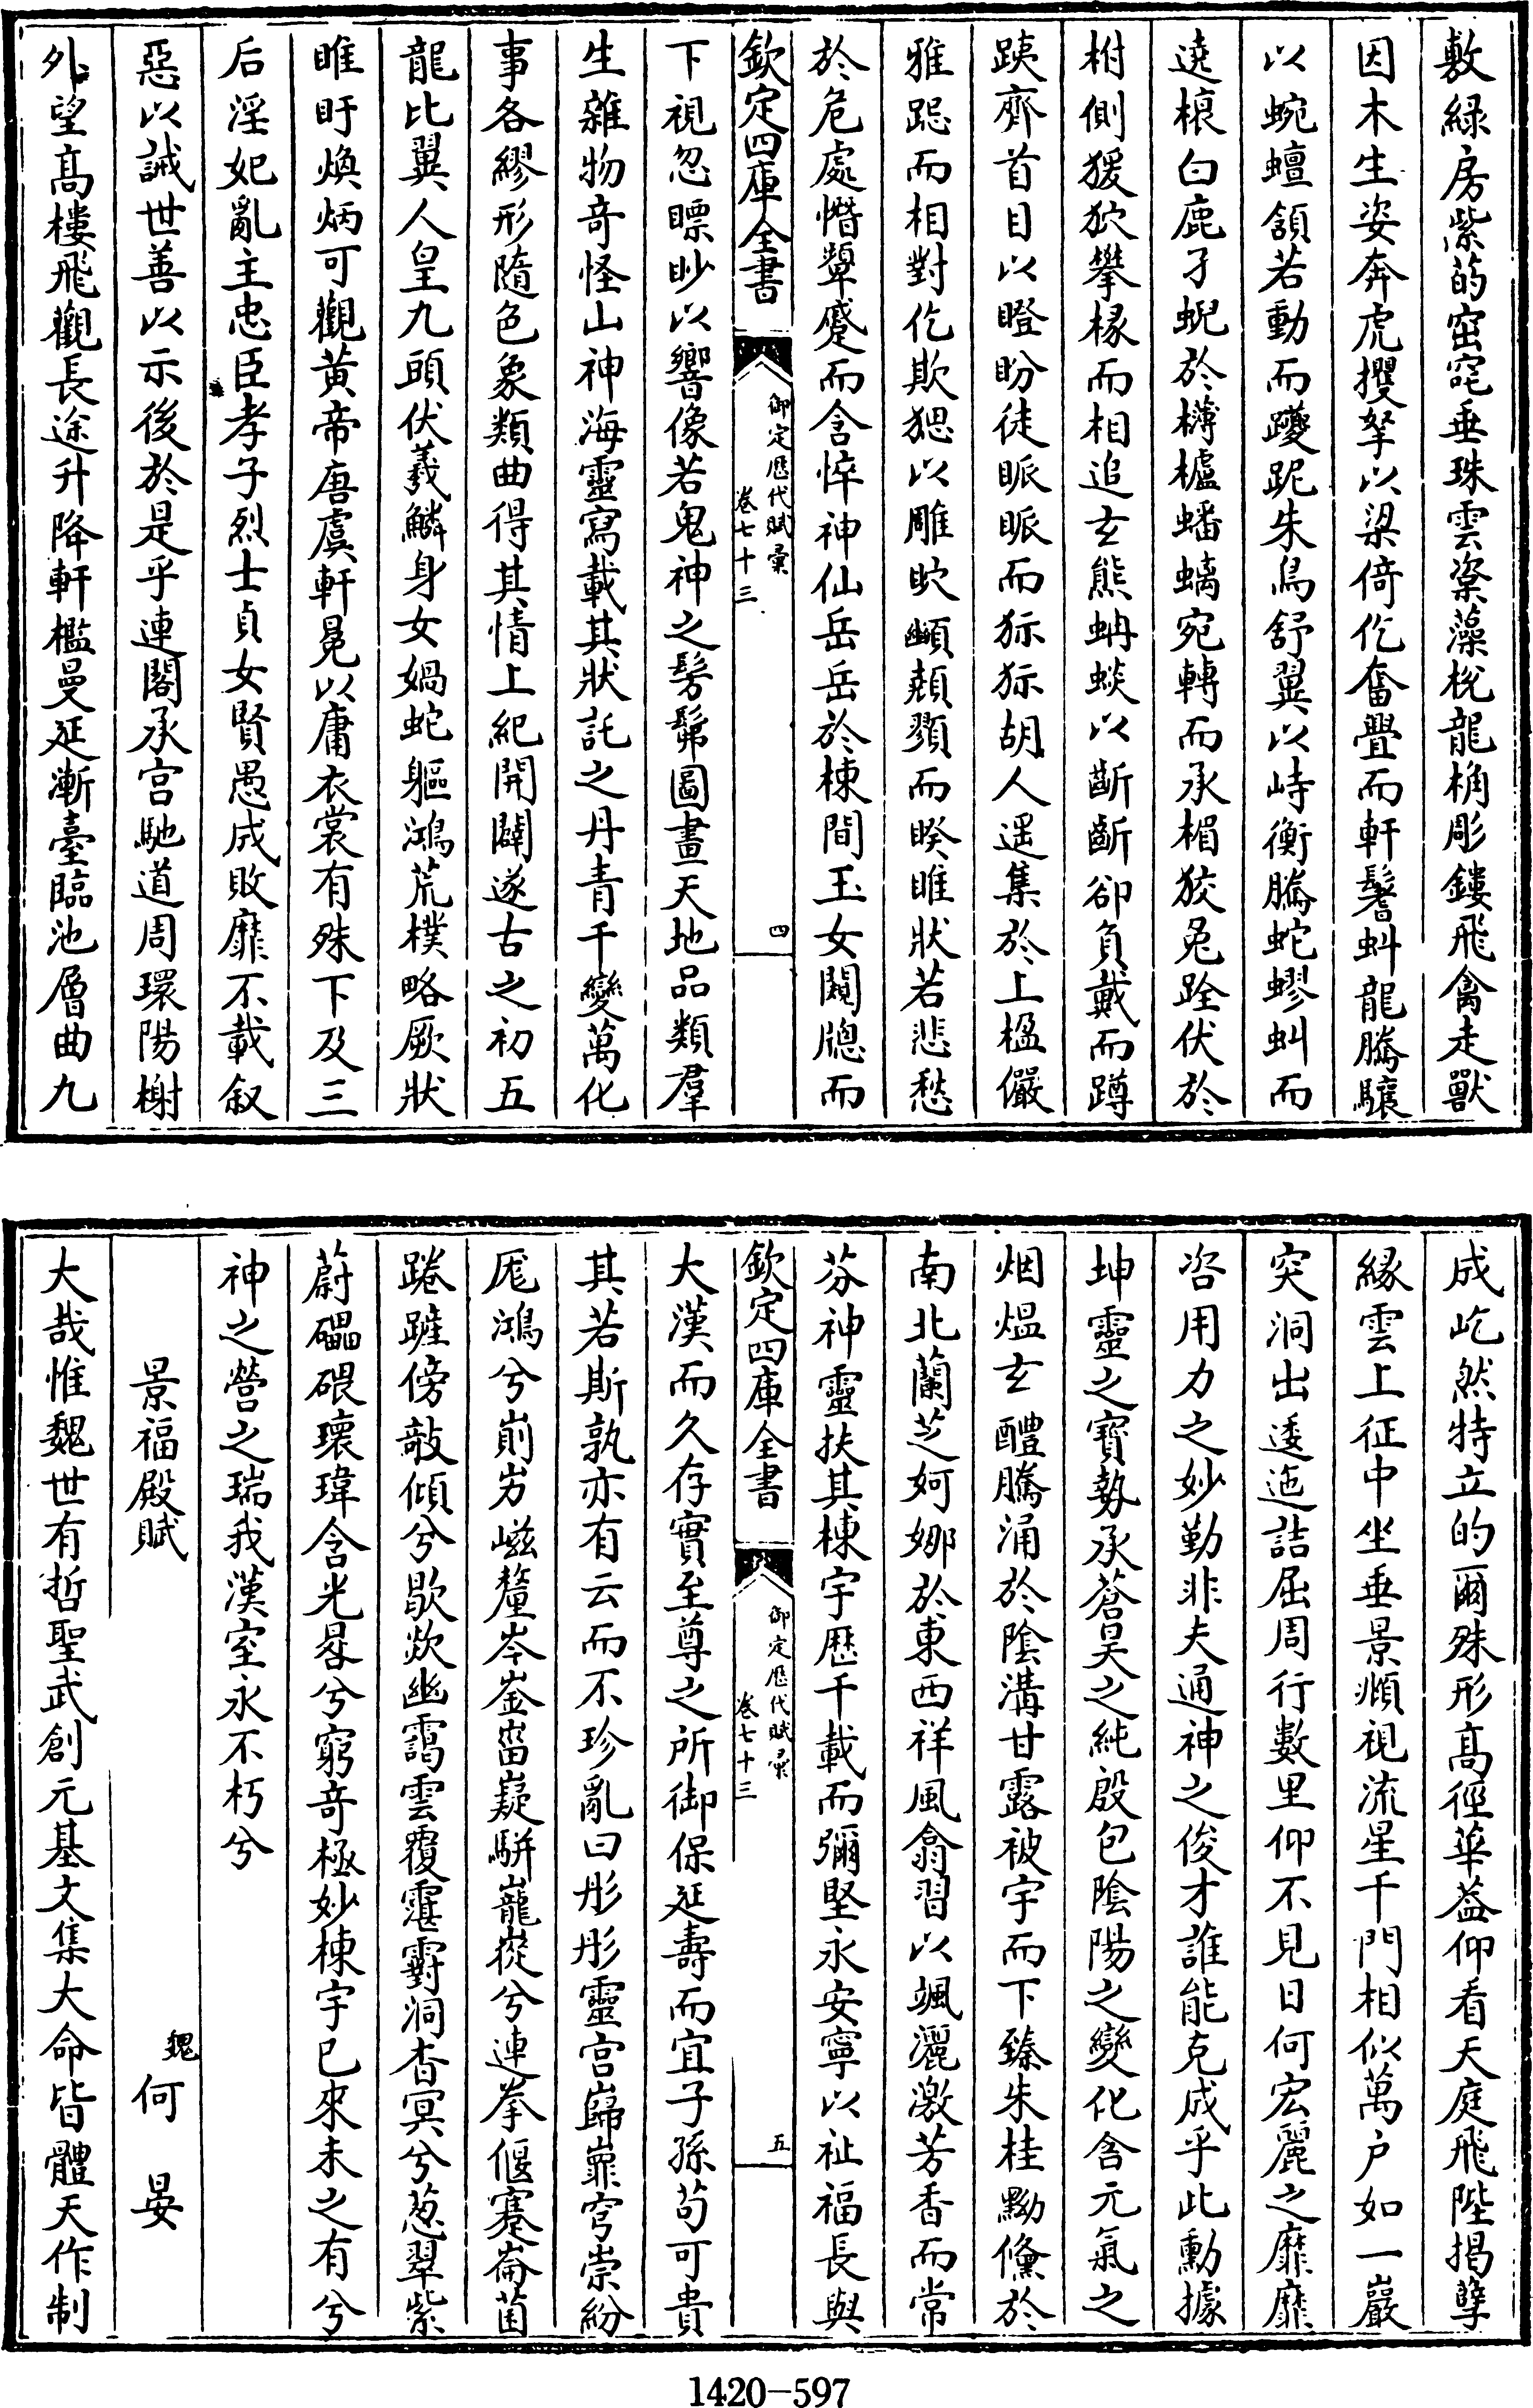 敷綠房紫菂窋窀垂珠雲楶藻梲龍桷彫鏤飛禽走獸
因木生姿奔虎攫挐以梁倚仡奮舋而軒鬐虯龍騰驤
以蜿蟺頷若動而躨跜朱鳥舒翼以峙衡騰蛇蟉虯而
遶榱白鹿孑蜺於欂櫨蟠螭宛轉而承楣狡兔跧伏於
柎側猨狖攀椽而相追玄熊蚺蛦以齗齗卻負戴而蹲
跠齊首目以瞪眄徒眽眽而狋狋胡人遥集於上楹儼
雅跽而相對仡欺𤟧以雕䀏䫜顤䫞而睽睢狀若悲愁
於危處憯顰蹙而含悴神仙岳岳於棟間玉女闚牎而
欽定四庫全書
御定歷代賦彙
卷七十三
四
下視忽瞟眇以響像若鬼神之髣髴圖畫天地品類羣
生雜物竒怪山神海靈寫載其狀託之丹青千變萬化
事各繆形隨色象類曲得其情上紀開闢遂古之初五
龍比翼人皇九頭伏羲鱗身女媧蛇軀鴻荒樸略厥狀
睢盱煥炳可觀黃帝唐虞軒冕以庸衣裳有殊下及三
后淫妃亂主忠臣孝子烈士貞女賢愚成敗靡不載叙
惡以誡世善以示後於是乎連閣承宫馳道周環陽榭
外望髙樓飛觀長途升降軒檻曼延漸臺臨池層曲九
成屹然特立的爾殊形髙徑華葢仰看天庭飛陛揭孽
緣雲上征中坐垂景頫視流星千門相似萬户如一巖
突洞出逶迤詰屈周行數里仰不見日何宏麗之靡靡
咨用力之妙勤非夫通神之俊才誰能克成乎此勳據
坤靈之寳勢承蒼昊之純殷包陰陽之變化含元氣之
烟煴玄醴騰涌於陰溝甘露被宇而下臻朱桂黝儵於
南北蘭芝婀娜於東西祥風翕習以颯灑激芳香而常
芬神靈扶其棟宇歴千載而彌堅永安寧以祉福長與
欽定四庫全書
御定歷代賦彙
卷七十三
五
大漢而久存實至尊之所御保延壽而宜子孫苟可貴
其若斯孰亦有云而不珍亂曰彤彤靈宫巋嶵穹崇紛
厖鴻兮崱屴嵫釐岑崟崰嶷駢巃嵸兮連拳偃蹇崘菌
踡䠥傍敧傾兮歇欻幽靄雲覆霮䨴洞杳冥兮葱翠紫
蔚礧碨瓌瑋含光晷兮窮竒極妙棟宇已來未之有兮
神之營之瑞我漢室永不朽兮
景福殿賦
魏何晏
大哉惟魏世有哲聖武創元基文集大命皆體天作制
1420-597